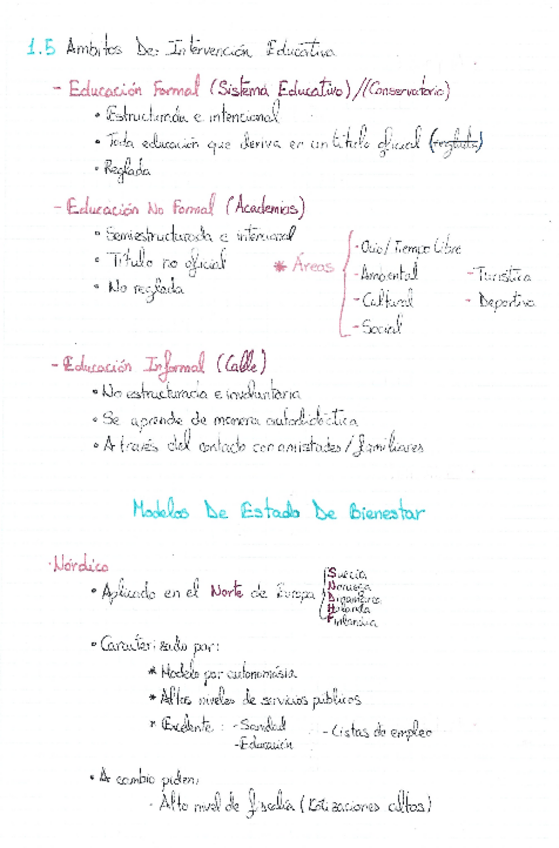 1.5 Ambitos De: Intervención Educativa
- Educación Formal (Sistema Educativo)//(Conservatorio)
• Estructurada e intencional
• Toda educación que deriva en un título oficial (reglada)
• Reglada
- Educación No Formal (Academias)
• Semiestructurada e intencional
• Título no oficial
• No reglada
* Áreas
- Ocio/Tiempo Libre
- Ambiental
- Cultural
- Social
- Turística
- Deportiva
- Educación Informal (Calle)
• No estructurada e involuntaria
• Se aprende de manera autodidáctica
• A través del contacto con amistades/familiares
Modelos De Estado De Bienestar
· Nórdico
• Aplicado en el Norte de Europa
Suecia
Noruega
Dinamarca
Holanda
Finlandia
• Caracterizado por:
* Modelo por autonomásia
* Altos niveles de servicios públicos
* Excelente: - Sanidad
- Educación
- Listas de empleo
• A cambio piden:
- Alto nivel de fiscalía (Cotizaciones altas)